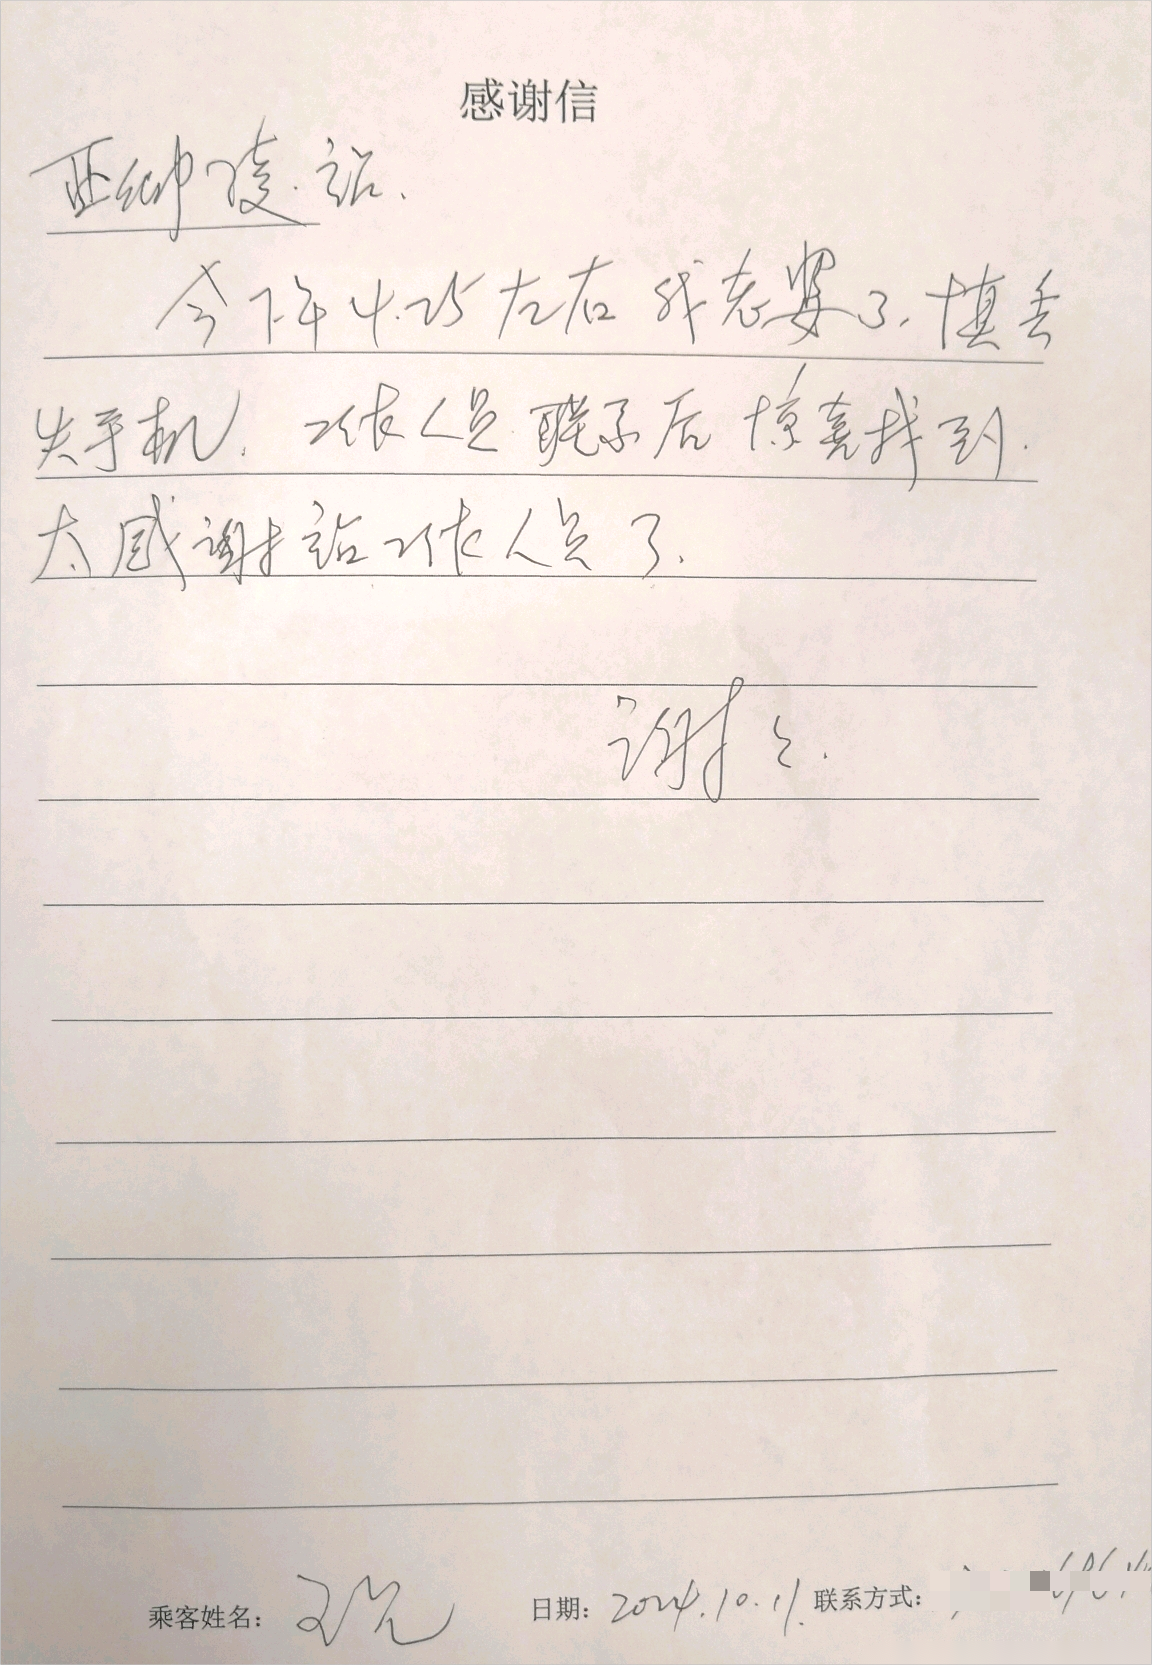 感谢信
站.
今下午4.25左右我
失手机. 工作人员联系后惊喜找到.
太感谢站工作人员了.
谢谢.
乘客姓名: 日期: 2024.10.11. 联系方式: